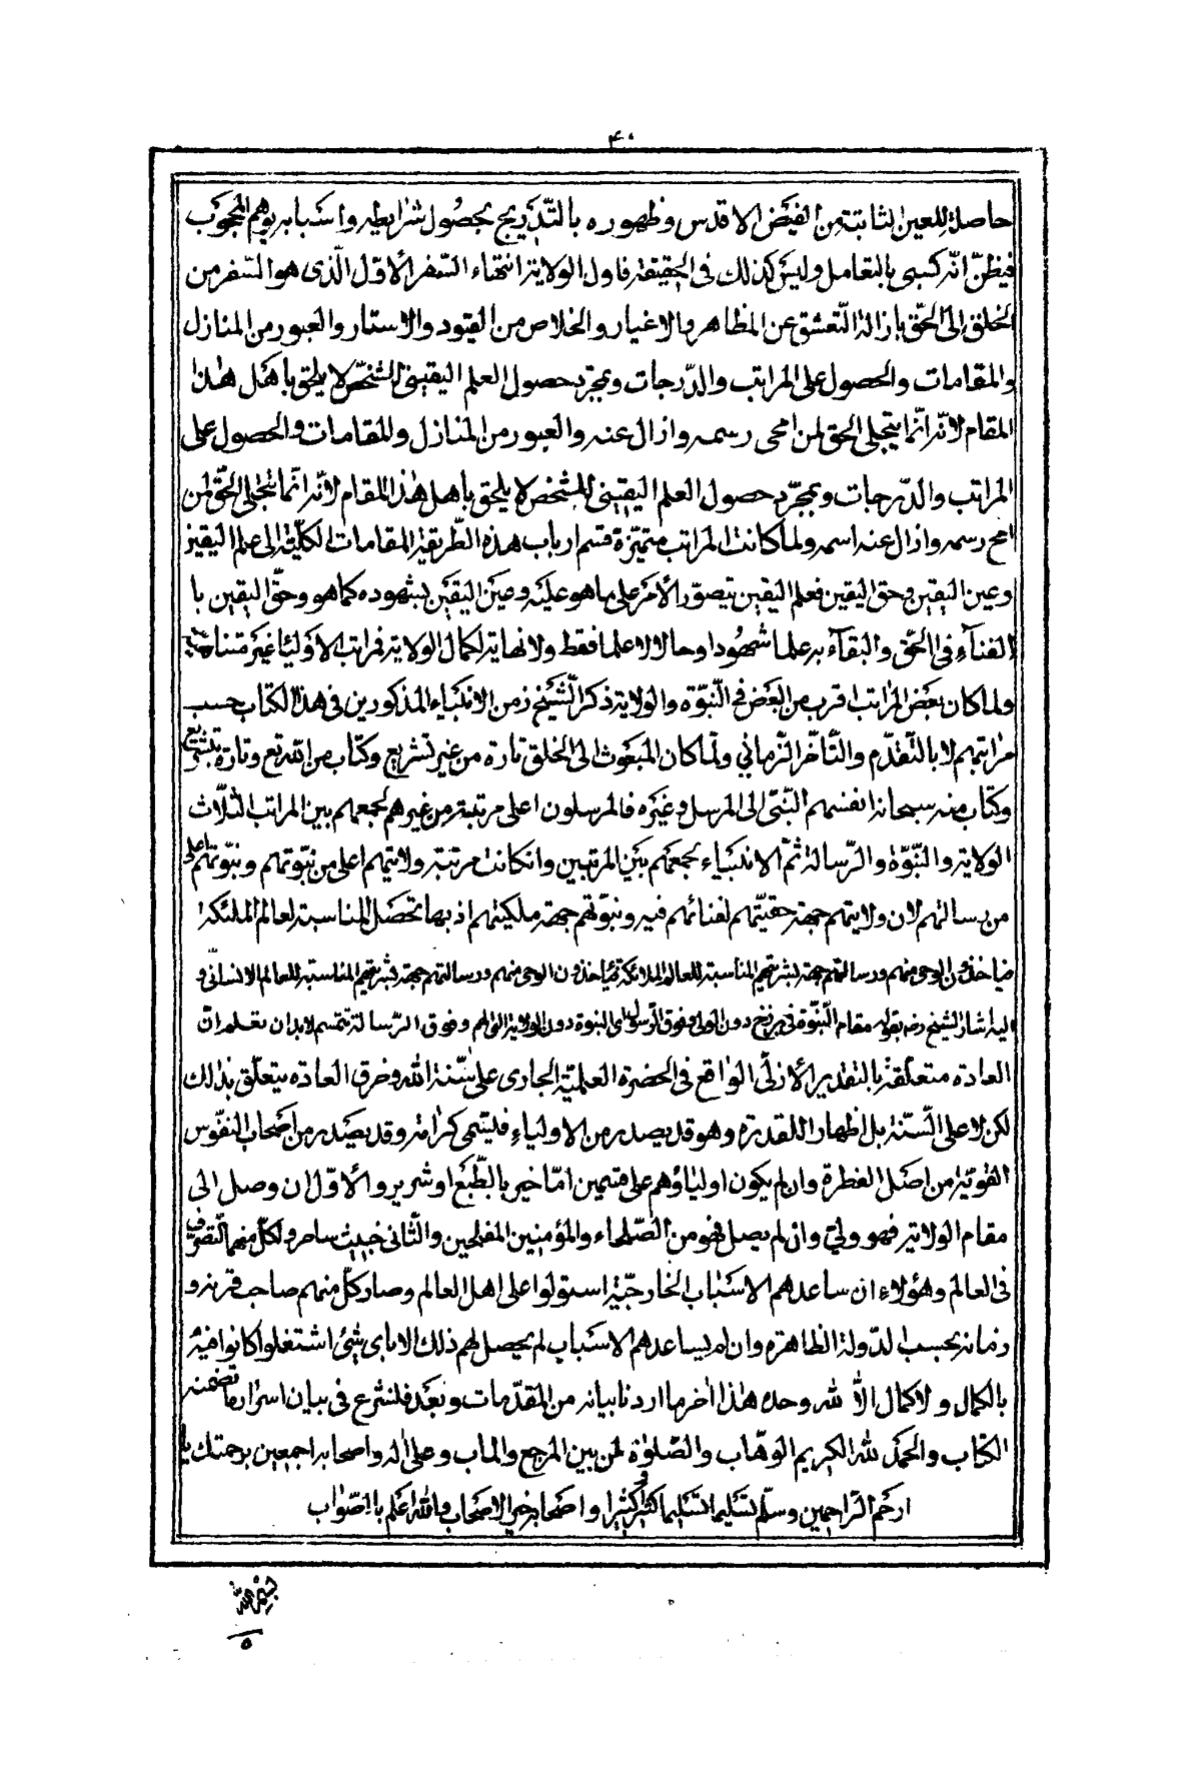 ۴۰
حاصلة للعين الثابتة من الفيض الاقدس وظهوره بالتّدريج بحصول شرايطه واسبابه يوهم المحجوب
فيظنّ انّه كسبى بالتعامل وليس كذلك فى الحقيقة فاول الولاية انتهاء السّفر الاوّل الّذى هو السّفر من
الخلق الى الحقّ بازالة التّعشق عن المظاهر والاغيار والخلاص من القيود والاستار والعبور من المنازل
والمقامات والحصول على المراتب والدّرجات وبمجرّد حصول العلم اليقينى للشّخص لا يلحق باهل هذا
المقام لانّه انّما يتجلى الحق لمن امحى رسمه وازال عنه والعبور من المنازل والمقامات والحصول على
المراتب والدّرجات وبمجرّد حصول العلم اليقينى للشخص لا يلحق باهل هذا المقام لانّه انّما يتجلى الحقّ لمن
امح رسمه وازال عنه اسمه ولما كانت المراتب متميّزة قسم ارباب هذه الطّريقة المقامات الكلّية الى علم اليقين
وعين اليقين وحق اليقين فعلم اليقين بتصوّر الأمر على ما هو عليه وعين اليقين بشهوده كما هو وحقّ اليقين با
لفناء فى الحق والبقآء به علما شهودا وحالا لا علما فقط ولا نهاية لكمال الولاية فراتب الاوليا غير متناهية
ولما كان بعض المراتب اقرب من البعض فى النّبوّة والولاية ذكر الشّيخ رض الانبياء المذكورين فى هذا الكتاب حسب
مراتبهم لا بالتّقدّم والتّأخّر الزّمانى ولمّا كان المبعوث الى الخلق تارة من غير تشريع وكتاب من الله تع وتارة بتشريع
وكتاب منه سبحانه انقسم النّبىّ الى المرسل وغيره فالمرسلون اعلى مرتبة من غيرهم لجمعهم بين المراتب الثّلاث
الولاية والنّبوّة والرّسالة ثمّ الانبياء لجمعهم بين المرتبتين وان كانت مرتبة ولايتهم اعلى من نبّوتهم ونبّوتهم اعلى
من رسالتهم لان ولايتهم جهة حقيّتهم لفنائهم فيه ونبوتهم جهة ملكيتهم اذ بها تحصل المناسبة لعالم الملئكة
فياخذون الوحى منهم ورسالتهم جهة بشريتهم المناسبة للعالم الملائكة فياخذون الوحى منهم ورسالتهم جهة بشريتهم المناسبة للعالم الانسانى و
اليه اشار الشيخ رضه بقوله مقام النّبّوة فى برزخ دون الولى وفوق الرّسول اى النبوة دون الولاية التى لهم وفوق الرّسالة تتميم لابد ان تعلم ان
العادة متعلّقة بالتقدير الأزلّى الواقع فى الحضرة العلميّة الجارى على سّنة الله وخرق العادة يتعلّق بذلك
لكن لا على السّنة بل اظهارا للقدرة وهو قد يصدر من الاولياء فليسّمى كرامة وقد يصدر من اصحاب النفّوس
القويّة من اصل الفطرة وان لم يكون اولياؤهم على قسمين امّا خير بالطّبع او شرير والأوّل ان وصل الى
مقام الولاية فهو ولىّ وان لم يصل فهو من الصّلحاء والمؤمنين المفلحين والثّانى خبيث ساحر ولكلّ منهما التّصرّف
فى العالم وهؤلاء ان ساعدهم الاسباب الخارجيّة استولوا على اهل العالم وصار كلّ منهم صاحب قرنه و
زمانه بحسب الدّولة الظاهرة وان لم يساعدهم الاسباب لم يحصل لهم ذلك الا باى شئ اشتغلوا كانوا فيه
بالكمال ولا كمال الاّ لله وحده هذا اخر ما اردنا بيانه من المقدّمات وبعد فلنشرع فى بيان اسرار ما تضمنه
الكتاب والحمد لله الكريم الوهّاب والصّلوة لمن بين المرجع والماب وعلى اله واصحابه اجمعين برحمتك يا
ارحم الرّاحمين وسلّم تسليما تسليما كثيرا كثيرا واصحابه خير الاصحاب والله اعلم باالصّواب
۵